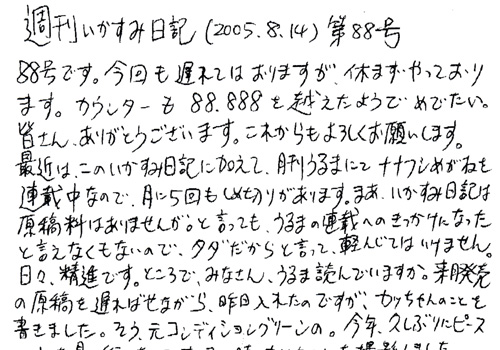 週刊いかすみ日記(2005.8.14)第88号
88号です。今回も遅れてはおりますが、休まずやっており
ます。カウンターも88.888を越えたようでめでたい。
皆さん、ありがとうございます。これからもよろしくお願いします。
最近は、このいかすみ日記に加えて、月刊うるまにてナナフシめがねを
連載中なので、月に5回も〆切りがあります。まあ、いかすみ日記は
原稿料はありませんが。と言っても、うるまの連載へのきっかけになった
と言えなくもないので、タダだからと言って、軽んじてはいけません。
日々、精進です。ところで、みなさん、うるま読んでいますか。来月発売
の原稿を遅ればせながら、昨日入れたのですが、カッちゃんのことを
書きました。そう、元コンディショングリーンの。今年、久しぶりにピース